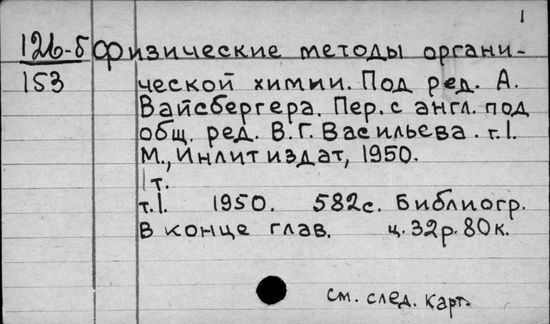 1
126-б Физические методы органи-
153 ческой химии. Под ред. А.
Вайсбергера. Пер. с англ. под
общ. ред. В.Г. Васильева. т.1.
М., Инлитиздат, 1950.
1 т.
т.1. 1950. 582с. Библиогр.
в конце глав. ц. 32р. 80к.
см. след. карт.